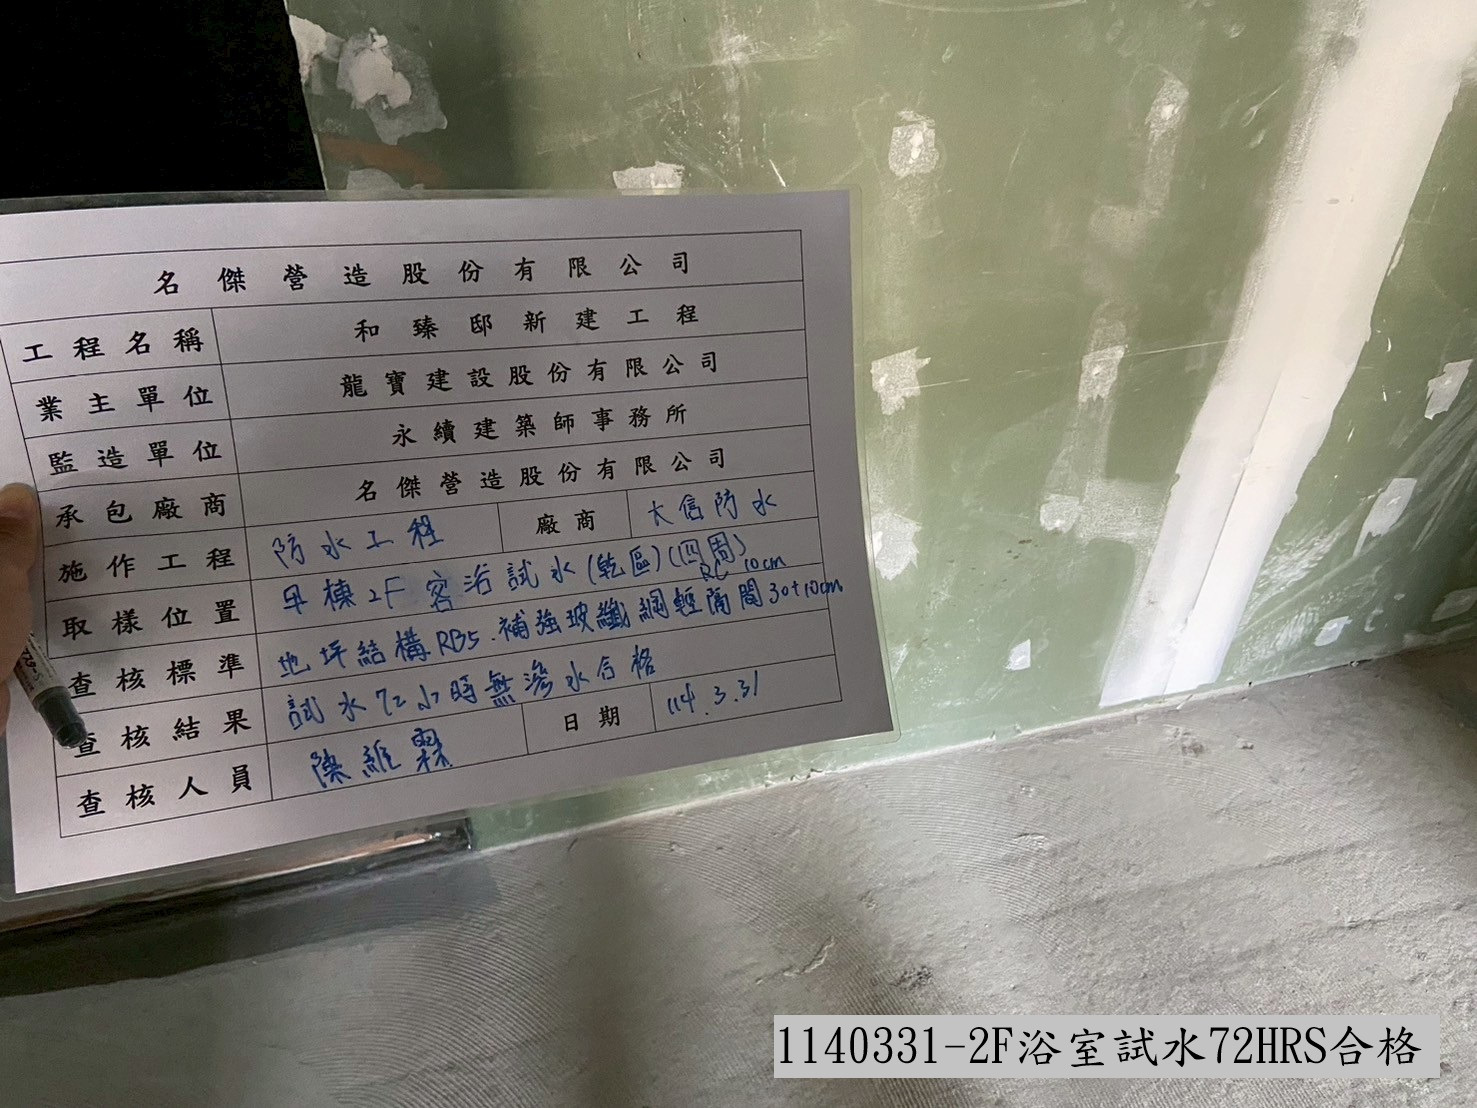 名傑營造股份有限公司
工程名稱 和臻邸新建工程
業主單位 龍寶建設股份有限公司
監造單位 永續建築師事務所
承包廠商 名傑營造股份有限公司
施作工程 防水工程 廠商 大信防水
取樣位置 棟2F客浴試水(乾區)(四周)
RC 10cm
查核標準 地坪結構RB5.補強玻纖網輕隔間30+10cm
查核結果 試水72小時無滲水合格
查核人員 陳維霖 日期 114.3.31
1140331-2F浴室試水72HRS合格